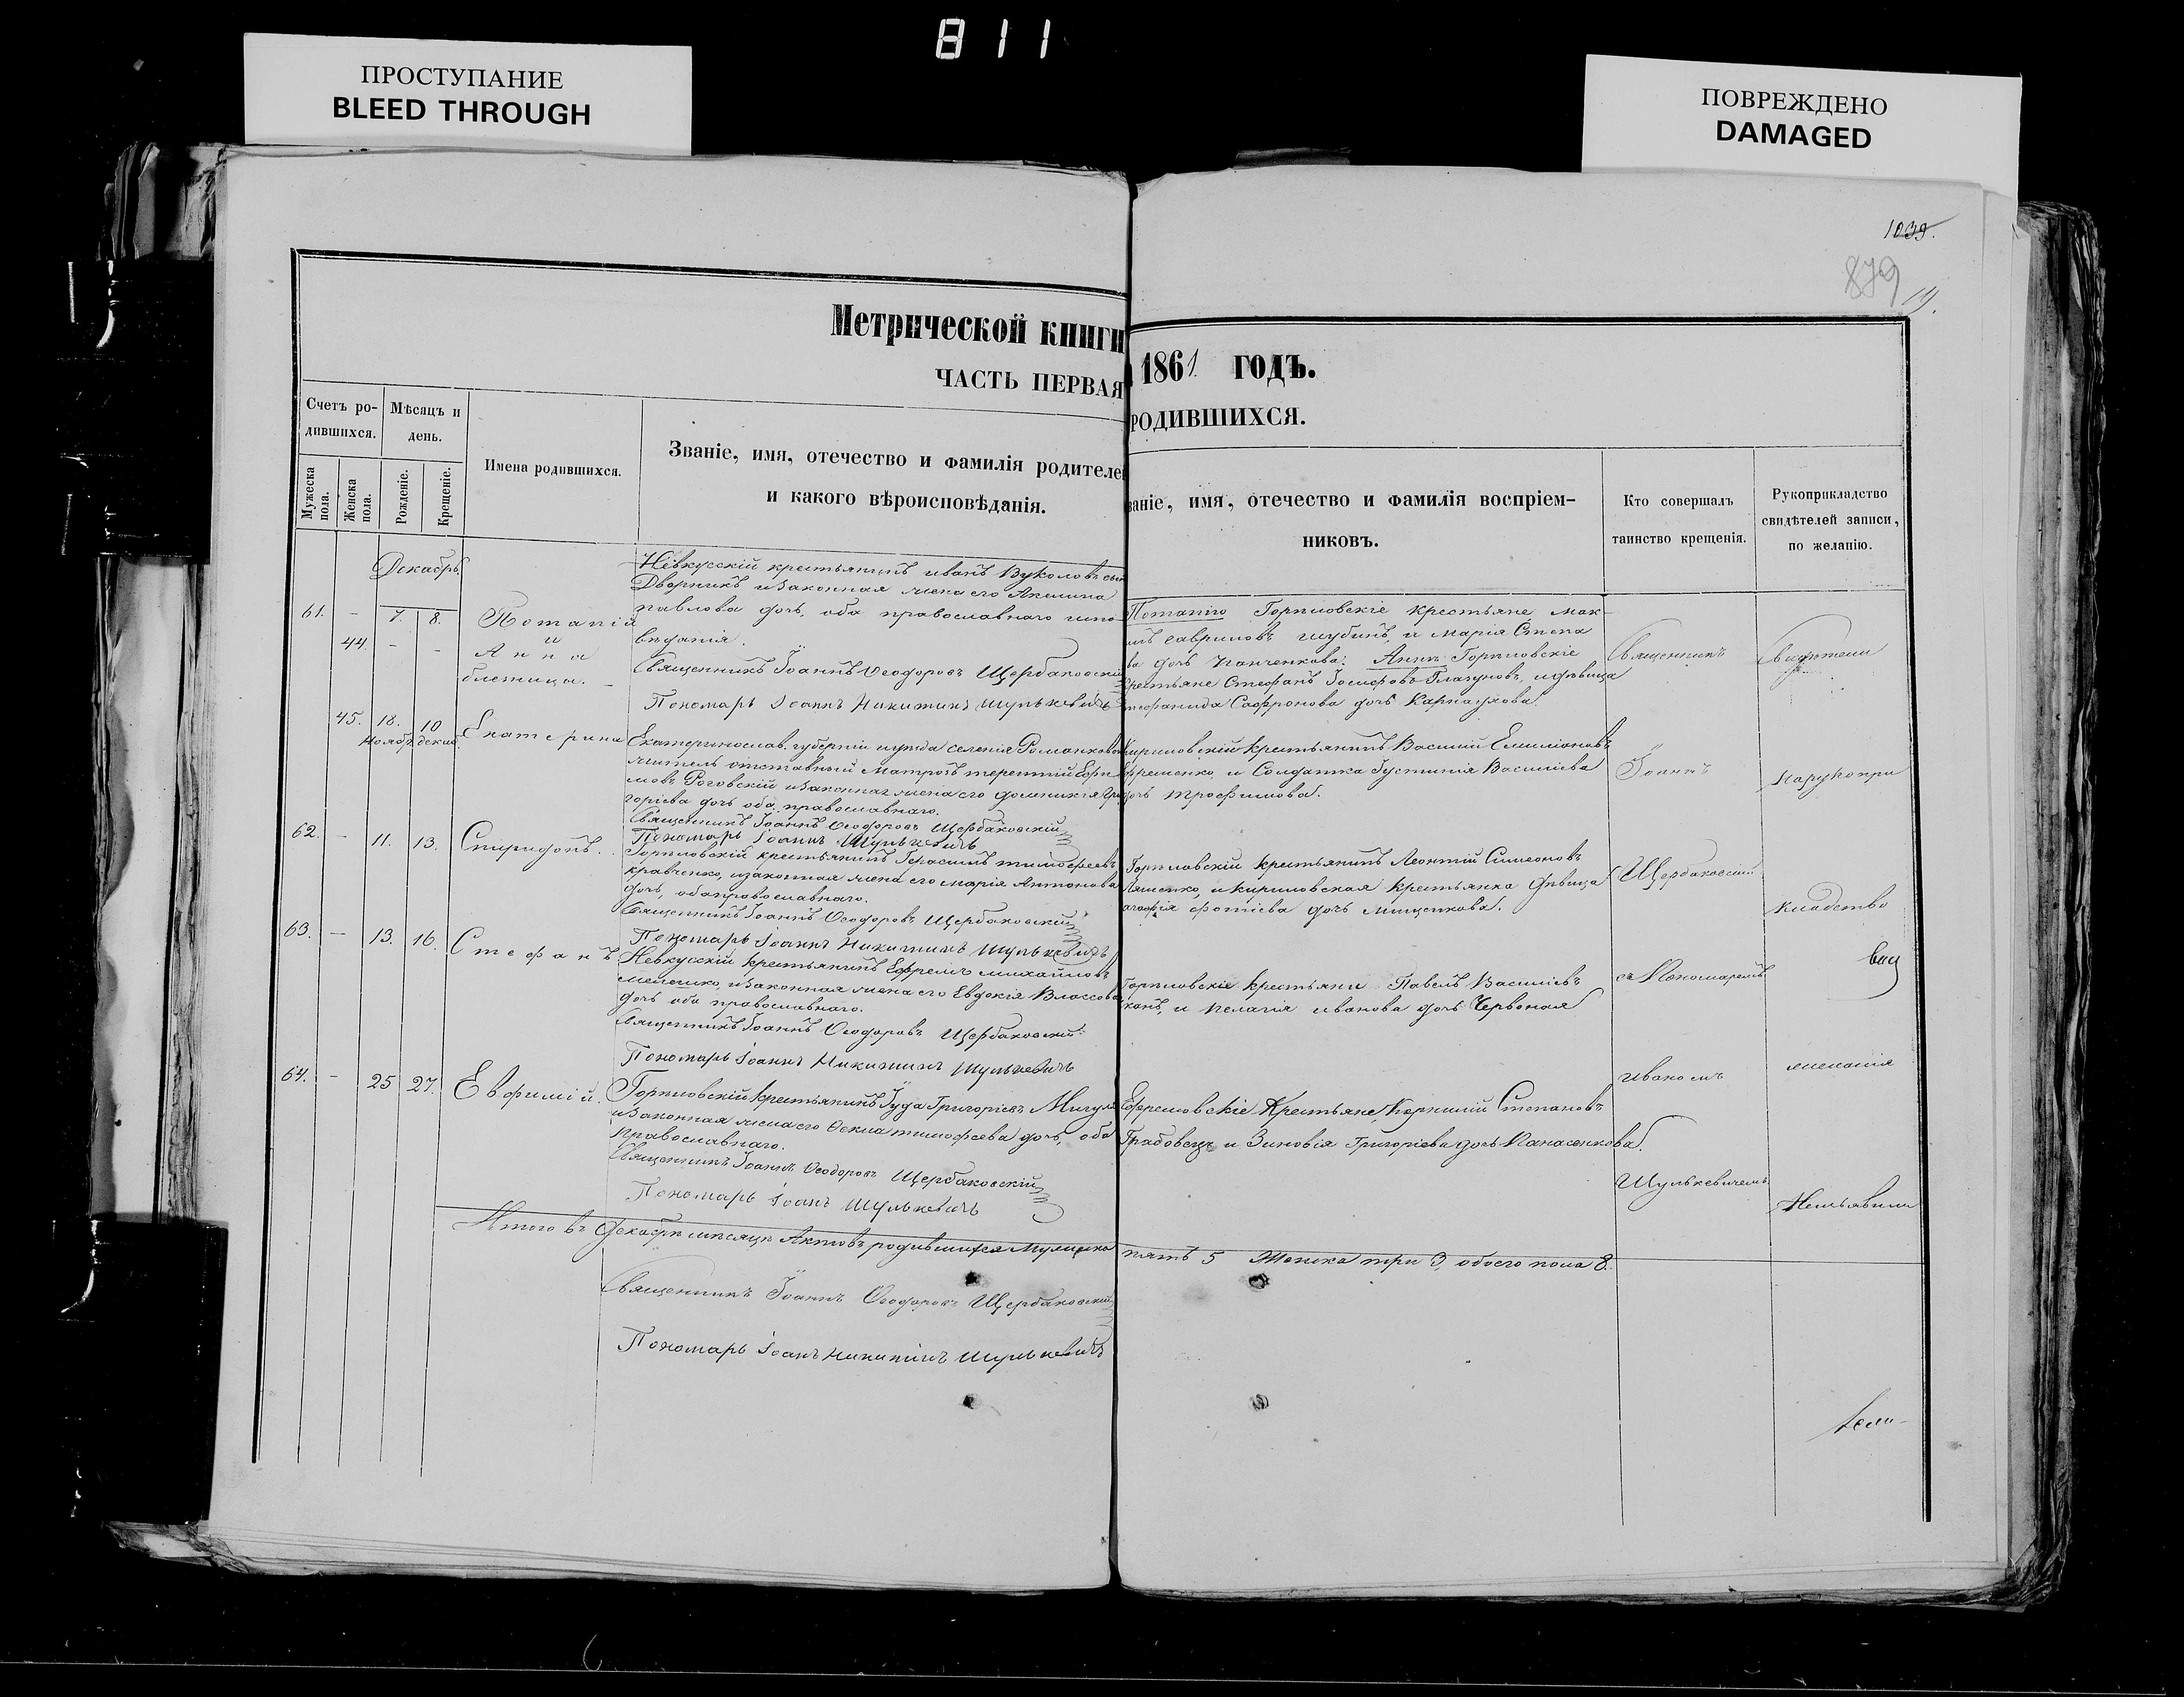 811
ПРОСТУПАНИЕ
BLEED THROUGH
ПОВРЕЖДЕНО
DAMAGED
1039.
879
Метрической книги
1861 ГОДЪ.
ЧАСТЬ ПЕРВАЯ
РОДИВШИХСЯ.
Счетъ ро-
дившихся.
Мужеска
пола.
Женска
пола.
Мѣсяцъ и
день.
Рожденіе.
Крещеніе.
Имена родившихся.
Званіе, имя, отечество и фамилія родителе
и какого вѣроисповѣданія.
ваніе, имя, отечество и фамилія воспріем-
никовъ.
Кто совершалъ
таинство крещенія.
Рукоприкладство
свидѣтелей записи,
по желанію.
Декабрь.
61. - 7. 8.
44. - -
Потапій
и
Анна
близница.
Невкусскій крестьянинъ иванъ Вуколовъ сын
Дворникъ и законная жена его Акелина
павлова дочь, оба православнаго испо
вѣданія.
Священникъ Іоаннъ Ѳеодоровъ Щербаковскій
Пономарь Іоаннъ Никитинъ Шулькевичь
Потапію Горпиловскіе крестьяне, мак-
имъ гавриловъ шубинъ, и марія Степа
ва дочь Панченкова: Аннѣ Горпиловскіе
крестьяне Стефанъ Іосифовъ Глазуновъ, и дѣвица
тефанида Сафронова дочь Карнаухова.
45. 18. 10
Ноябр. декаб.
Екатерина
Екатеринослав. губерніи уезда селенія Романкова
житель отставный матрозъ терентій Ефи
мовъ Роговскій и законная жена его доминикія Гри
горіева дочь оба православнаго.
Священникъ Іоаннъ Ѳеодоровъ Щербаковскій
Пономарь Іоаннъ Шулькевичь
Кириловскій крестьянинъ Василій Емиліановъ
Ефременко, и Солдатка Іустинія Василіева
дочь трофимова.
62. - 11. 13. Спиридонъ.
Горпиловскій крестьянинъ Герасимъ тимофеевъ
кравченко, и законная жена его марія Антонова
дочь, оба православнаго.
Священникъ Іоаннъ Ѳеодоровъ Щербаковскій
Пономарь Іоаннъ Никитинъ Шулькевичь
Горпиловскій крестьянинъ Леонтій Симеоновъ
Ляшенко, и кириловская крестьянка дѣвица
агафія фотіева дочь мищенкова.
63. - 13. 16. Стефанъ
Невкусскій крестьянинъ Ефремъ михайловъ
и законная жена его Евдокія Влассова
дочь оба православнаго.
Священникъ Іоаннъ Ѳеодоровъ Щербаковскій
Пономарь Іоаннъ Никитинъ Шулькевичь
Горпиловскіе крестьяни Павелъ Василіевъ
канъ, и пелагія иванова дочь Червоная
64. - 25 27. Евфимій.
Горпиловскій крестьянинъ Іуда Григоріевъ Мигуля
и законная жена его Ѳекла тимофеева дочь, оба
православнаго.
Священникъ Іоаннъ Ѳеодоровъ Щербаковскій
Пономарь Іоанъ Шулькевичь
Ефремовскіе Крестьяне, Корнилій Степановъ
Грабовецъ и Зиновія Григоріева дочь Панасенкова.
Священникъ
Іоаннъ
Щербаковскій
съ Пономаремъ
иваномъ
Шулькевичемъ
Свидѣтели
На рукопри
кладство
желанія
Неизъявили
Итого въ декабрѣ мѣсяцѣ Актовъ родившихся Мужеска пять 5 Женска три 3, обоего пола 8.
Священникъ Іоаннъ Ѳеодоровъ Щербаковскій
Пономарь Іоанъ никитинъ Шулькевичъ